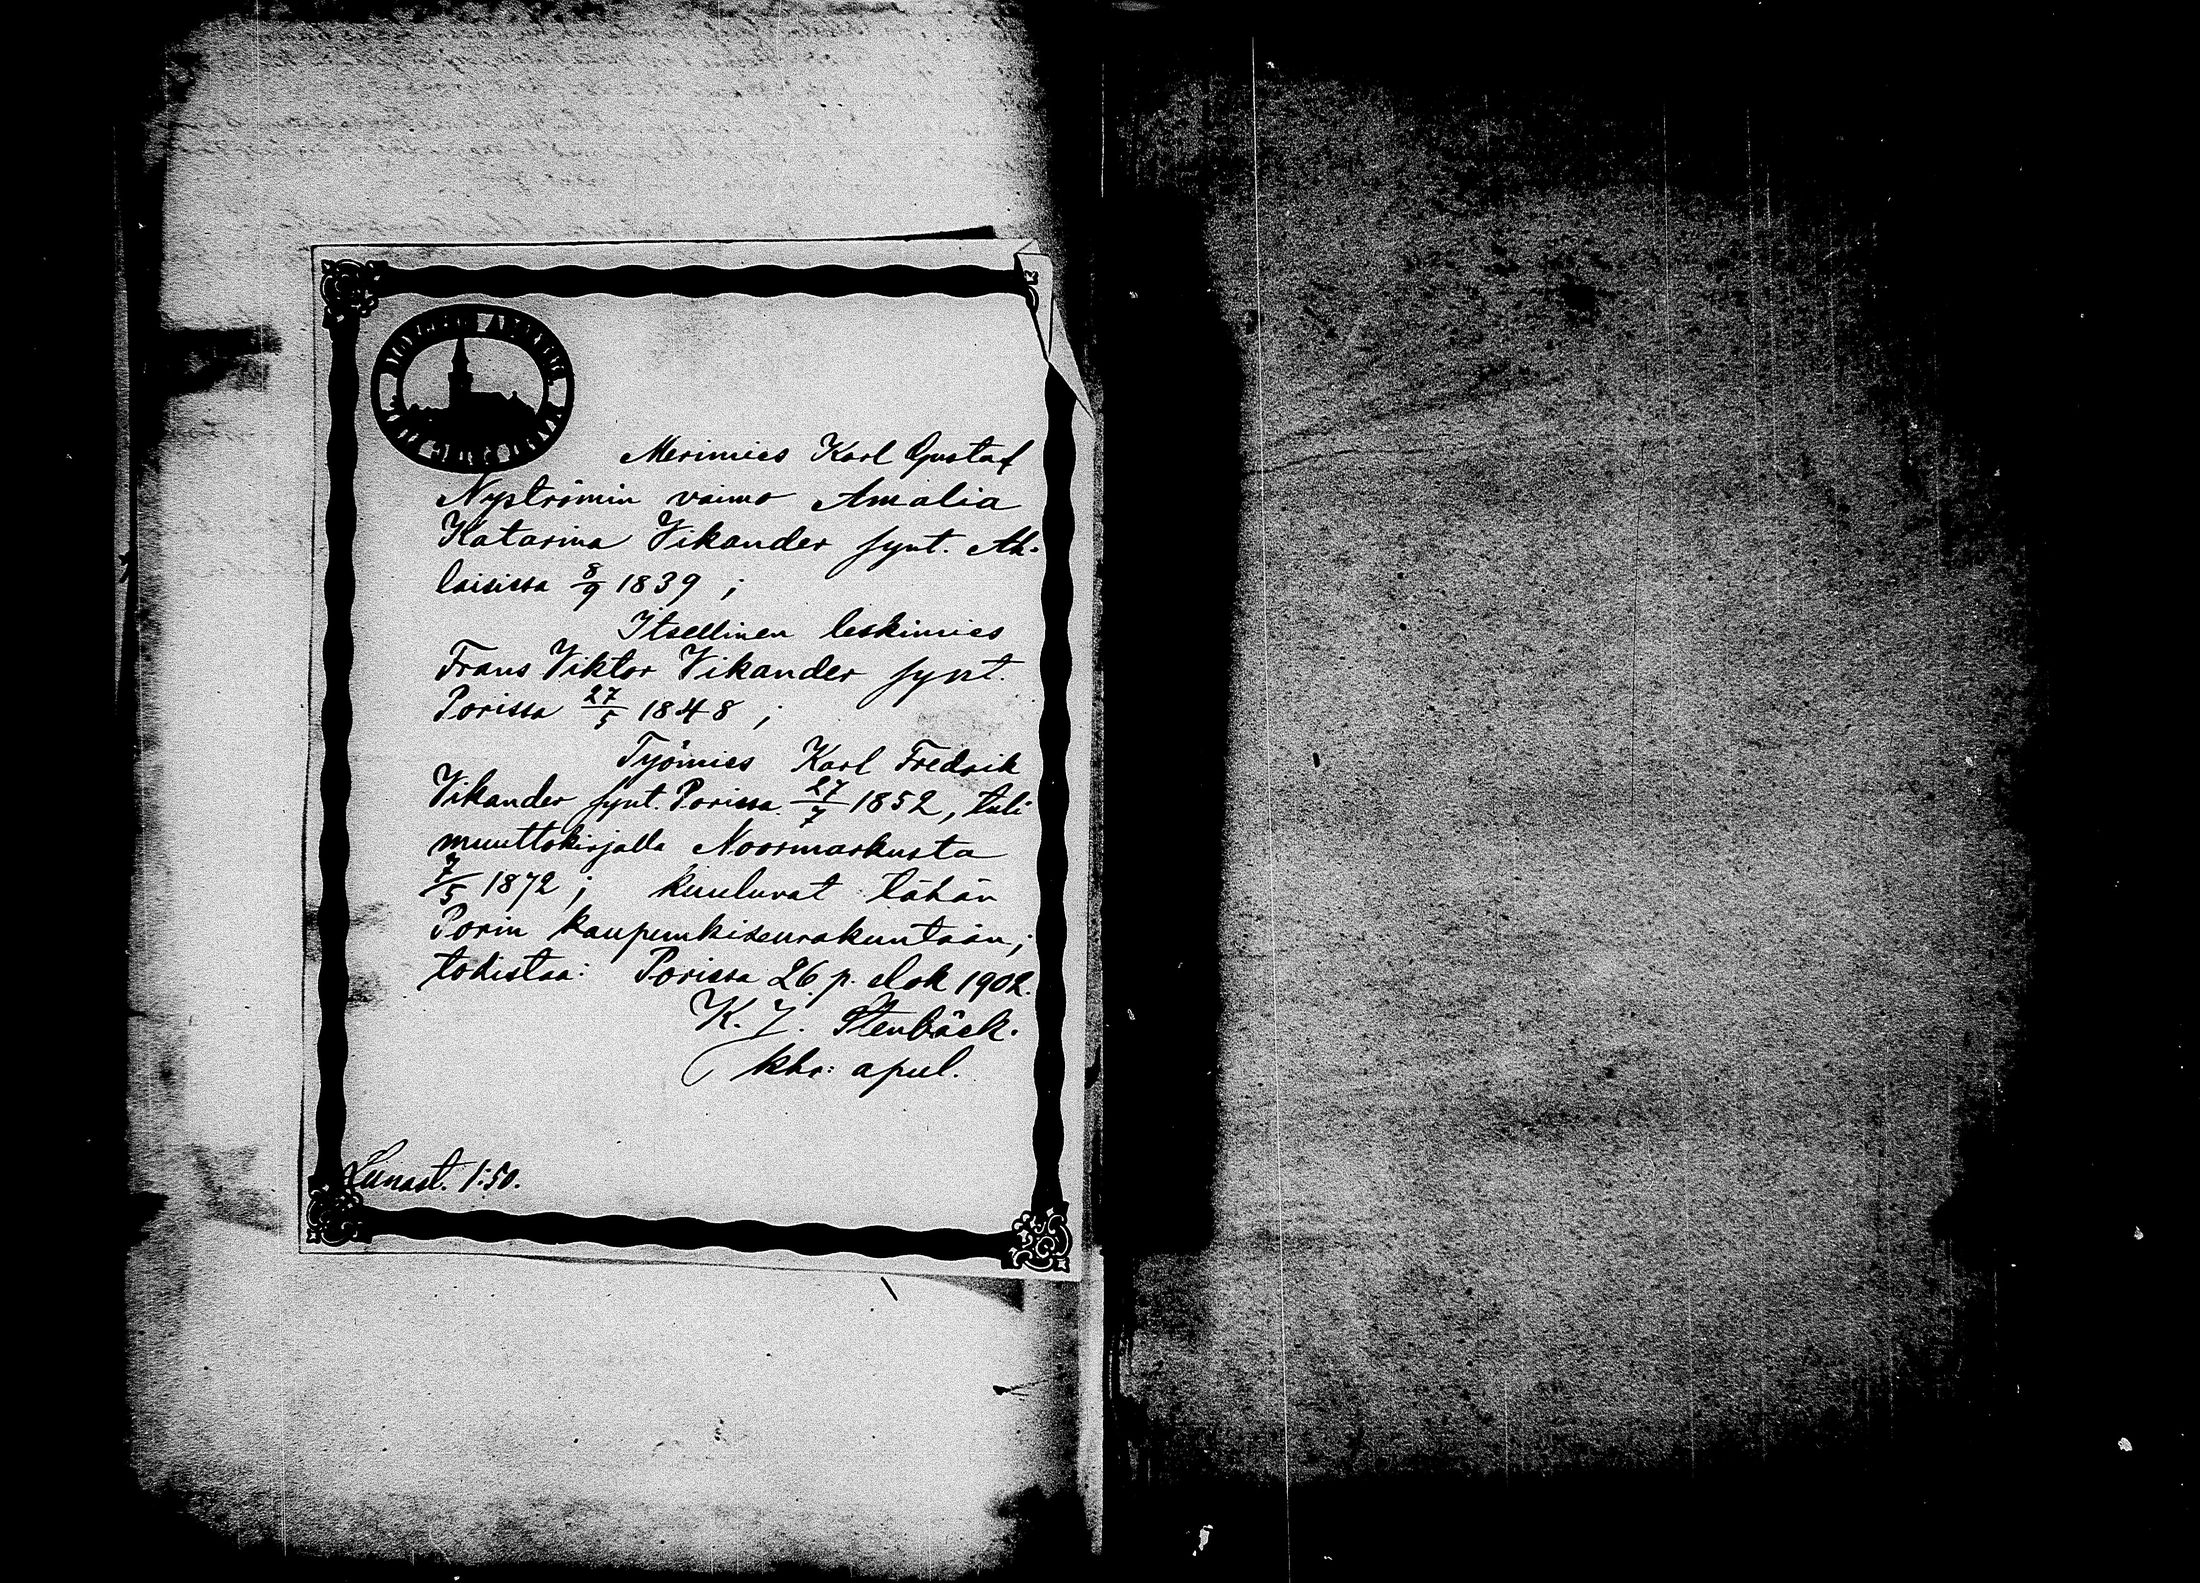 Merimies Karl Gustaf
Nyströmin vaimo Amalia
Katarina Vikander synt. Ah-
laisissa 8/9 1839 ;
Itsellinen leskimies
Frans Viktor Vikander synt.
Porissa 27/5 1848 ;
Työmies Karl Fredrik
Vikander synt. Porissa 27/7 1852, tuli
muuttokirjalla Noormarkusta
7/5 1872 ; kuuluvat tähän
Porin kaupunkiseurakuntaan;
todistaa: Porissa 26 p. elok 1902.
K. J. Stenbäck.
khr: apul.
Lunast. 1:50.